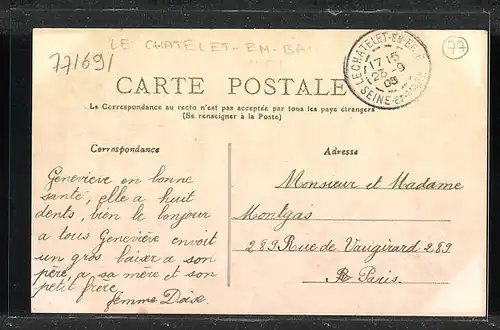 LE CHATELET-EN-BRI
77169/
77
LE CHATELET-EN-BRIE
17 15
23 -9
09
SEINE-ET-MARNE
CARTE POSTALE
La Correspondance au recto n'est pas acceptée par tous les pays étrangers
(Se renseigner à la Poste)
Correspondance
Geneviève en bonne
santé, elle a huit
dents, bien le bonjour
a tous Geneviève envoit
un gros baiser a son
père, a sa mère et son
petit frère.
femme
Adresse
Monsieur et Madame
Montgas
289 Rue de Vaugirard 289
Paris.